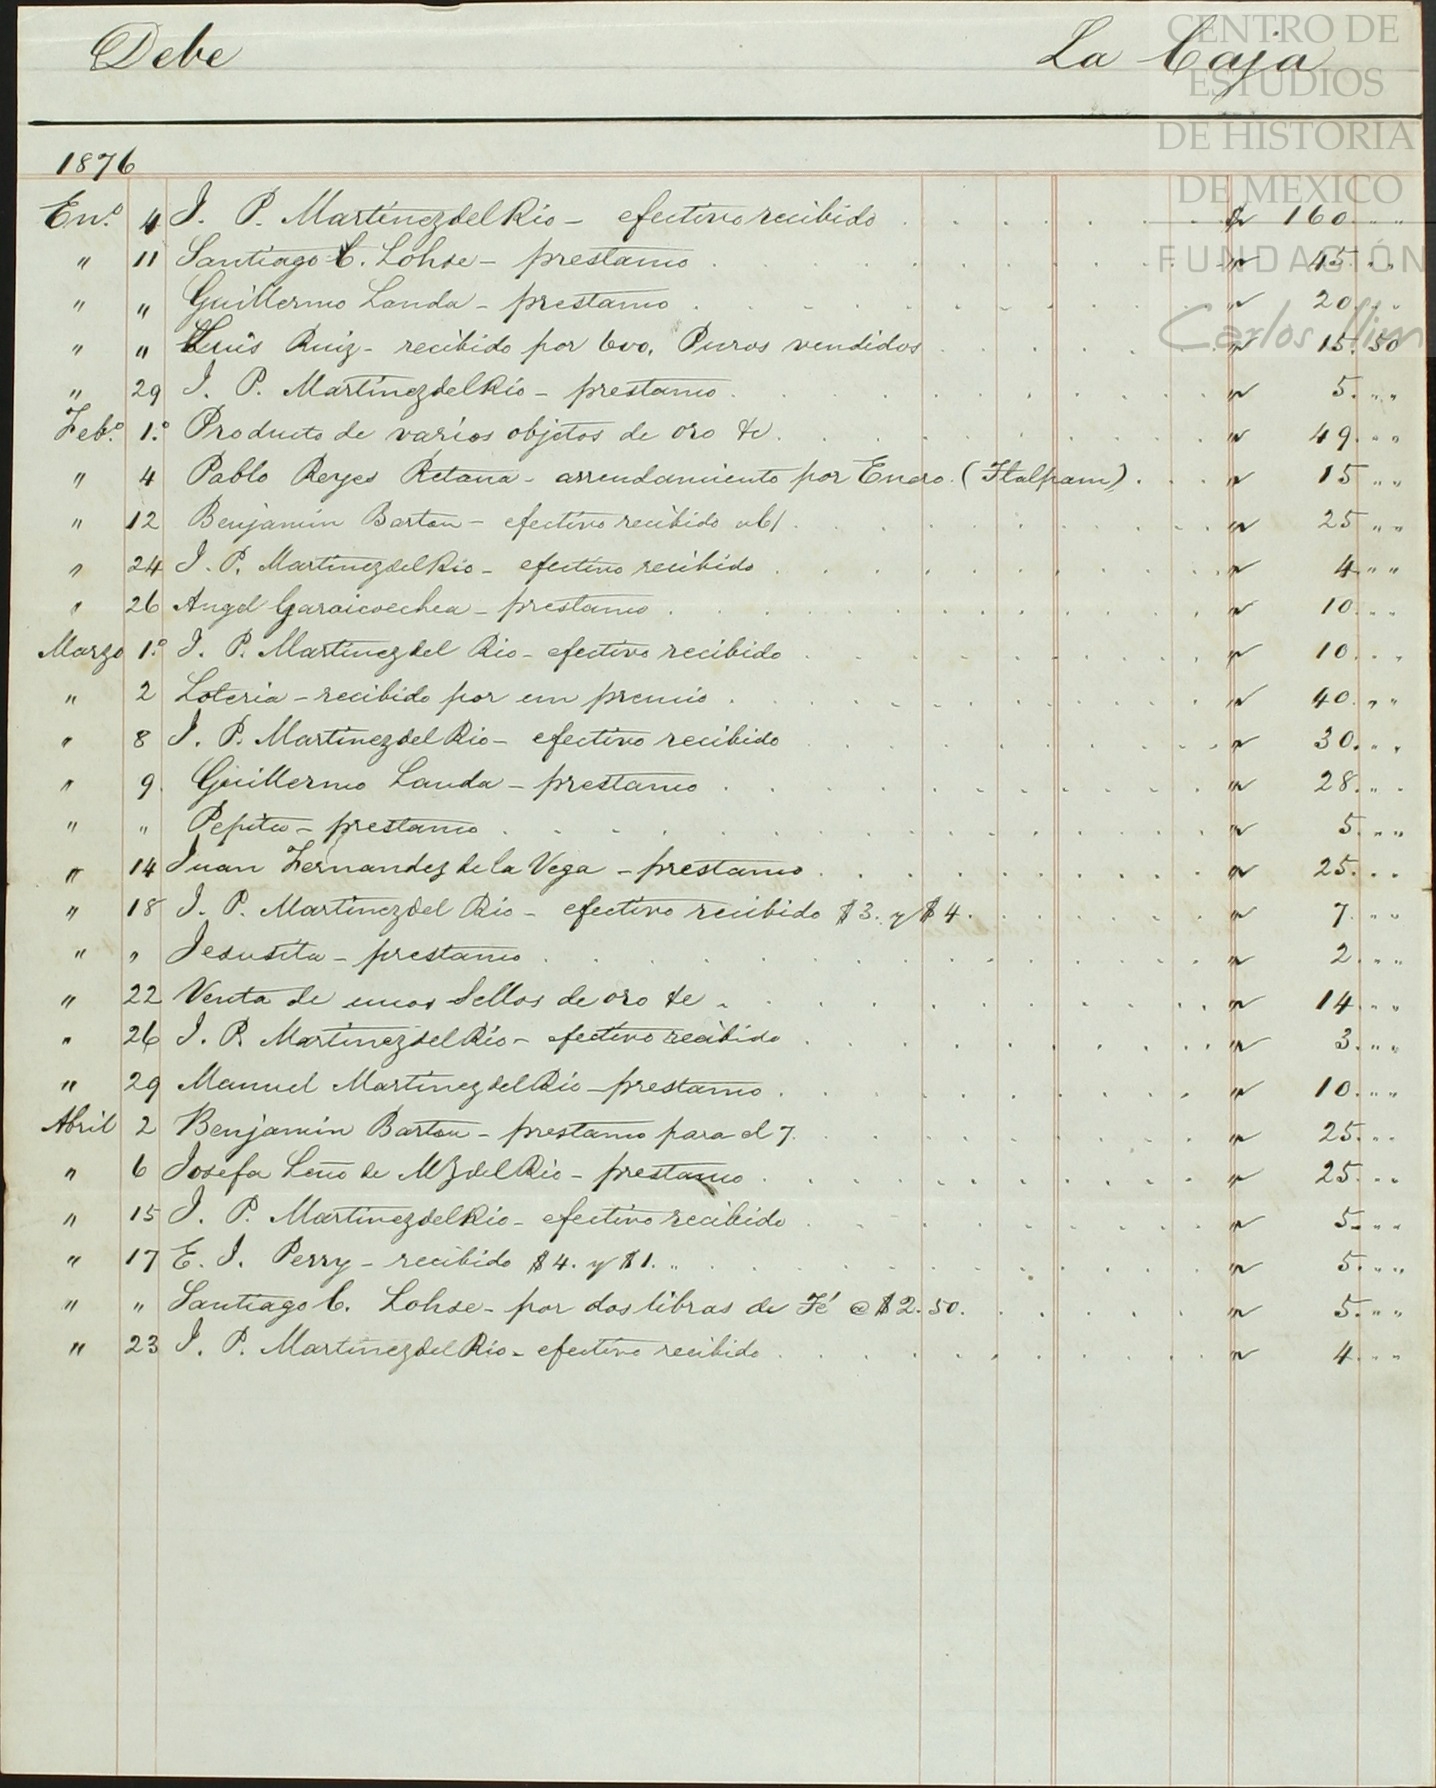 Debe La Caja
CENTRO DE
ESTUDIOS
DE HISTORIA
DE MEXICO
FUNDACIÓN
Carlos Slim
1876
En.º 4 J. P. Martinez del Rio - efectivo recibido $ 160. " "
" 11 Santiago C. Lohse - prestamo " 45. " "
" " Guillermo Landa - prestamo " 20. " "
" " Luis Ruiz - recibido por 600, Puros vendidos " 15. 50
" 29 J. P. Martinez del Rio - prestamo " 5. " "
Feb.º 1.º Producto de varios objetos de oro &c. " 49. " "
" 4 Pablo Reyes Retana - arrendamiento por Enero. (Tlalpam) " 15 " "
" 12 Benjamin Barton - efectivo recibido " 25 " "
" 24 J. P. Martinez del Rio - efectivo recibido " 4 " "
" 26 Angel Garaicoechea - prestamo " 10. " "
Marzo 1.º J. P. Martinez del Rio - efectivo recibido " 10. " "
" 2 Loteria - recibido por un premio " 40. " "
" 8 J. P. Martinez del Rio - efectivo recibido " 30. " "
" 9. Guillermo Landa - prestamo " 28. " "
" " Pepita - prestamo " 5. " "
" 14 Juan Fernandez de la Vega - prestamo " 25. " "
" 18 J. P. Martinez del Rio - efectivo recibido $3. y $4. " 7. " "
" " Jesusita - prestamo " 2. " "
" 22 Venta de unos Sellos de oro &c " 14. " "
" 26 J. P. Martinez del Rio - efectivo recibido " 3. " "
" 29 Manuel Martinez del Rio - prestamo " 10. " "
Abril 2 Benjamin Barton - prestamo para el 7. " 25. " "
" 6 Josefa Leño de Mz del Rio - prestamo " 25. " "
" 15 J. P. Martinez del Rio - efectivo recibido " 5. " "
" 17 E. J. Perry - recibido $4. y $1. " " 5. " "
" " Santiago C. Lohse - por dos libras de Té @ $2.50. " 5. " "
" 23 J. P. Martinez del Rio - efectivo recibido " 4. " "